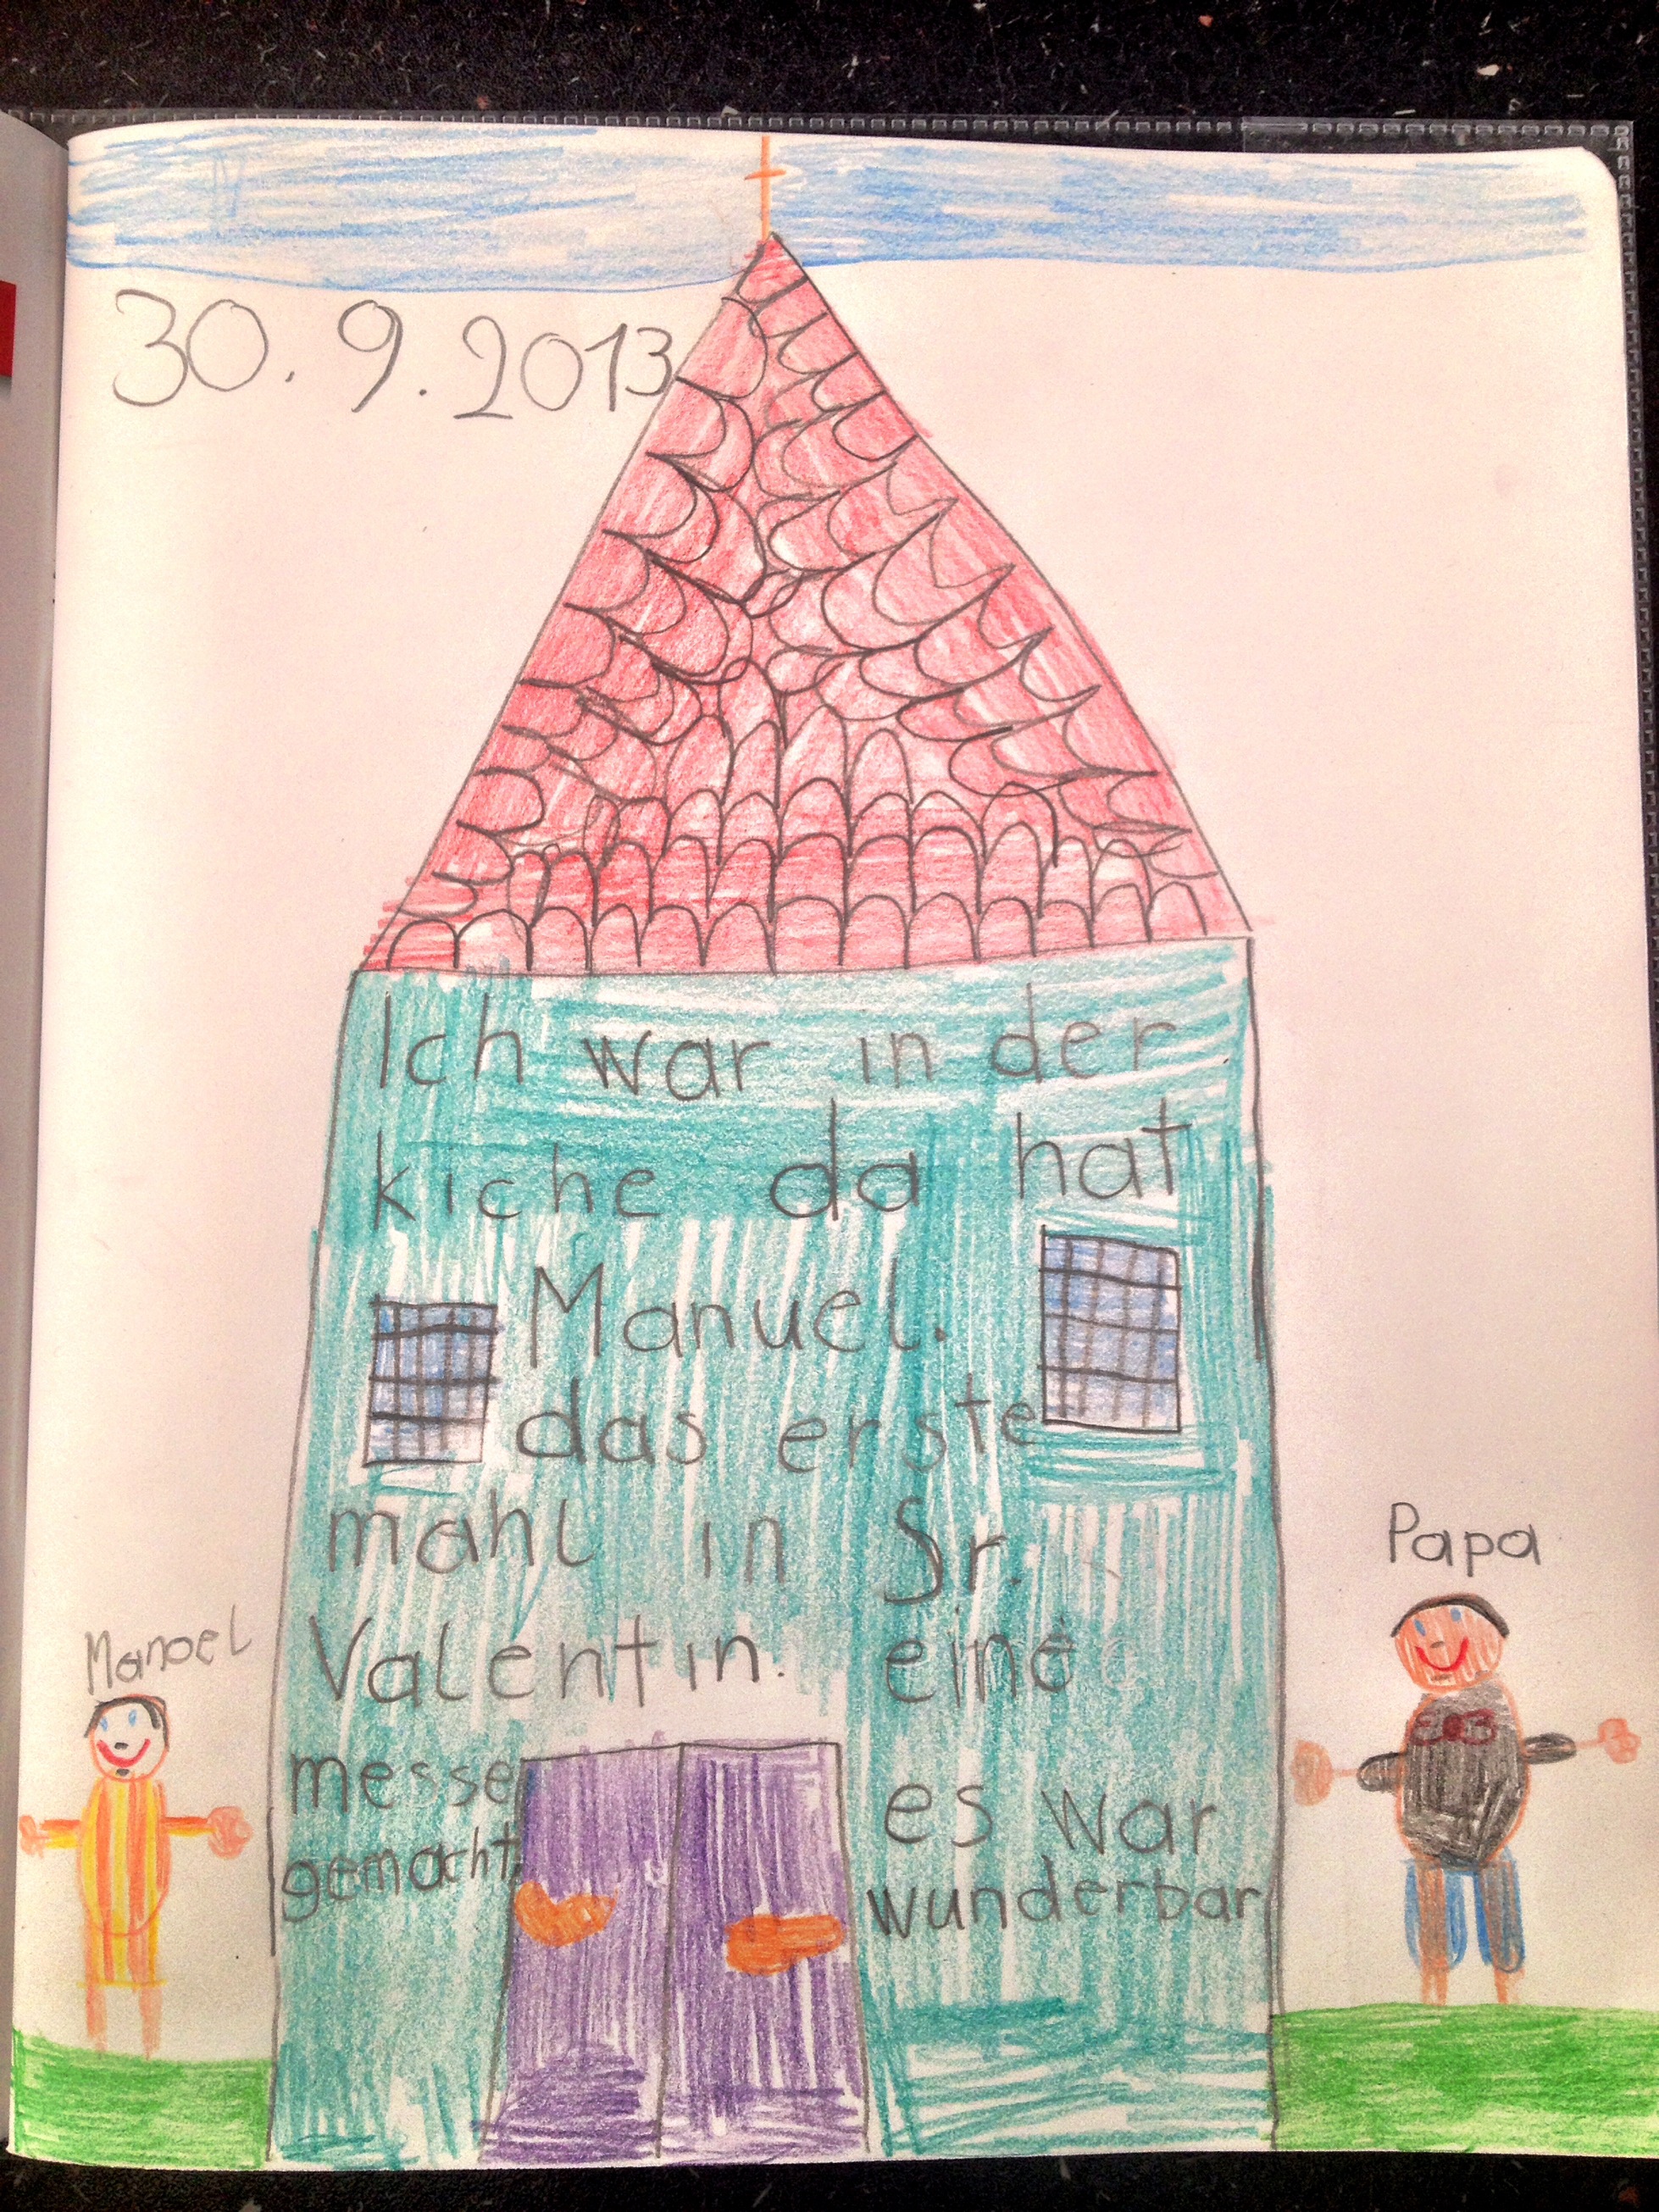 30.9.2013
Ich war in der
kiche da hat
Manuel.
das erste
mahl in Sr.
Valentin. eine
messe
gemacht.
es war
wunderbar
Manoel
Papa